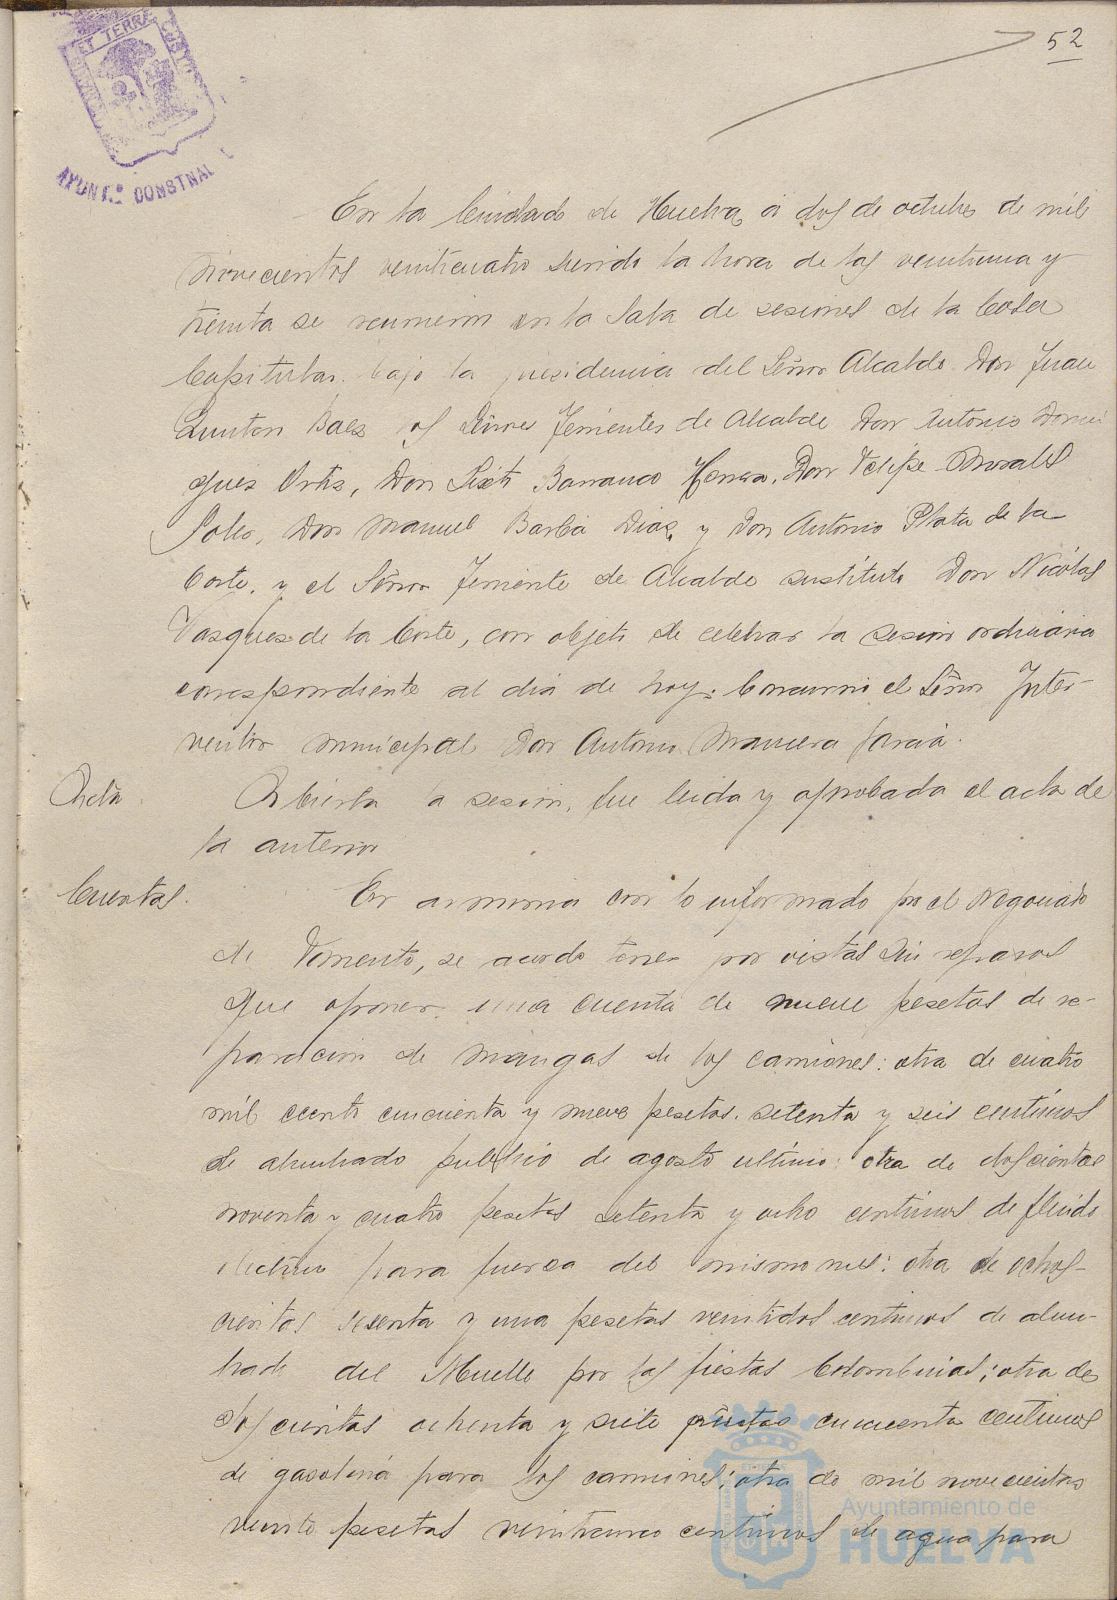 52
ET TERRAE CUSTO
AYUNT.º CONSTNAL
En la Ciudad de Huelva, a dos de octubre de mil
novecientos veinticuatro siendo la hora de las veintiuna y
treinta se reunieron en la Sala de sesiones de la Casa
Capitular, bajo la presidencia del Señor Alcalde Don Juan
Quintero Baez los Señores Tenientes de Alcalde Don Antonio Domin
guez Ortiz, Don Sixto Barranco Herrera, Don Felipe Morales
Don Manuel Barba Diaz, y Don Antonio Plata de la
Corte, y el Señor Teniente de Alcalde sustituto Don Nicolas
Vazquez de la Corte, con objeto de celebrar la sesion ordinaria
correspondiente al dia de hoy. Concurrió el Señor Inter-
ventor municipal Don Antonio Manuera Garcia.
Acta.
Abierta la sesion, fue leida y aprobada el acta de
la anterior
Cuentas.
En armonia con lo informado por el Negociado
de Fomento, se acordo tener por vistas sin reparos
que oponer, una cuenta de nueve pesetas de re-
paracion de mangas de los camiones: otra de cuatro
mil ciento cincuenta y nueve pesetas setenta y seis centimos
de alumbrado publico de agosto ultimo: otra de doscientas
noventa y cuatro pesetas setenta y ocho centimos de fluido
electrico para fuerza del mismo mes: otra de ochos-
cientas sesenta y una pesetas veintidos centimos de alum-
brado del Muelle por las fiestas Colombinas; otra de
doscientas ochenta y siete pesetas cincuenta centimos
de gasolina para los camiones; otra de mil novecientas
veinte pesetas veinticinco centimos de agua para
Ayuntamiento de
HUELVA